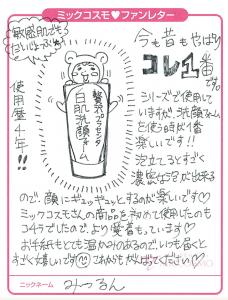 ミックコスモ♥ファンレター
敏感肌でも
だいじょーぶ☆
使用歴4年!!
贅沢プラセンタ
白肌洗顔フォーム
今も昔もやっぱり
コレ1番
です。
シリーズで使用して
いますが、洗顔フォーム
を使う時が1番
楽しいです!!
泡立てるとすぐ
濃密な泡が出来る
ので、顔にギュギュッとするのが楽しいです♡
ミックコスモさんの商品を初めて使用したのも
コイツでしたので、より愛着もっています♡
お手紙もとても温かみのあるので、いつも届くと
すごく嬉しいです これからもがんばってください♡
ニックネーム みつるん